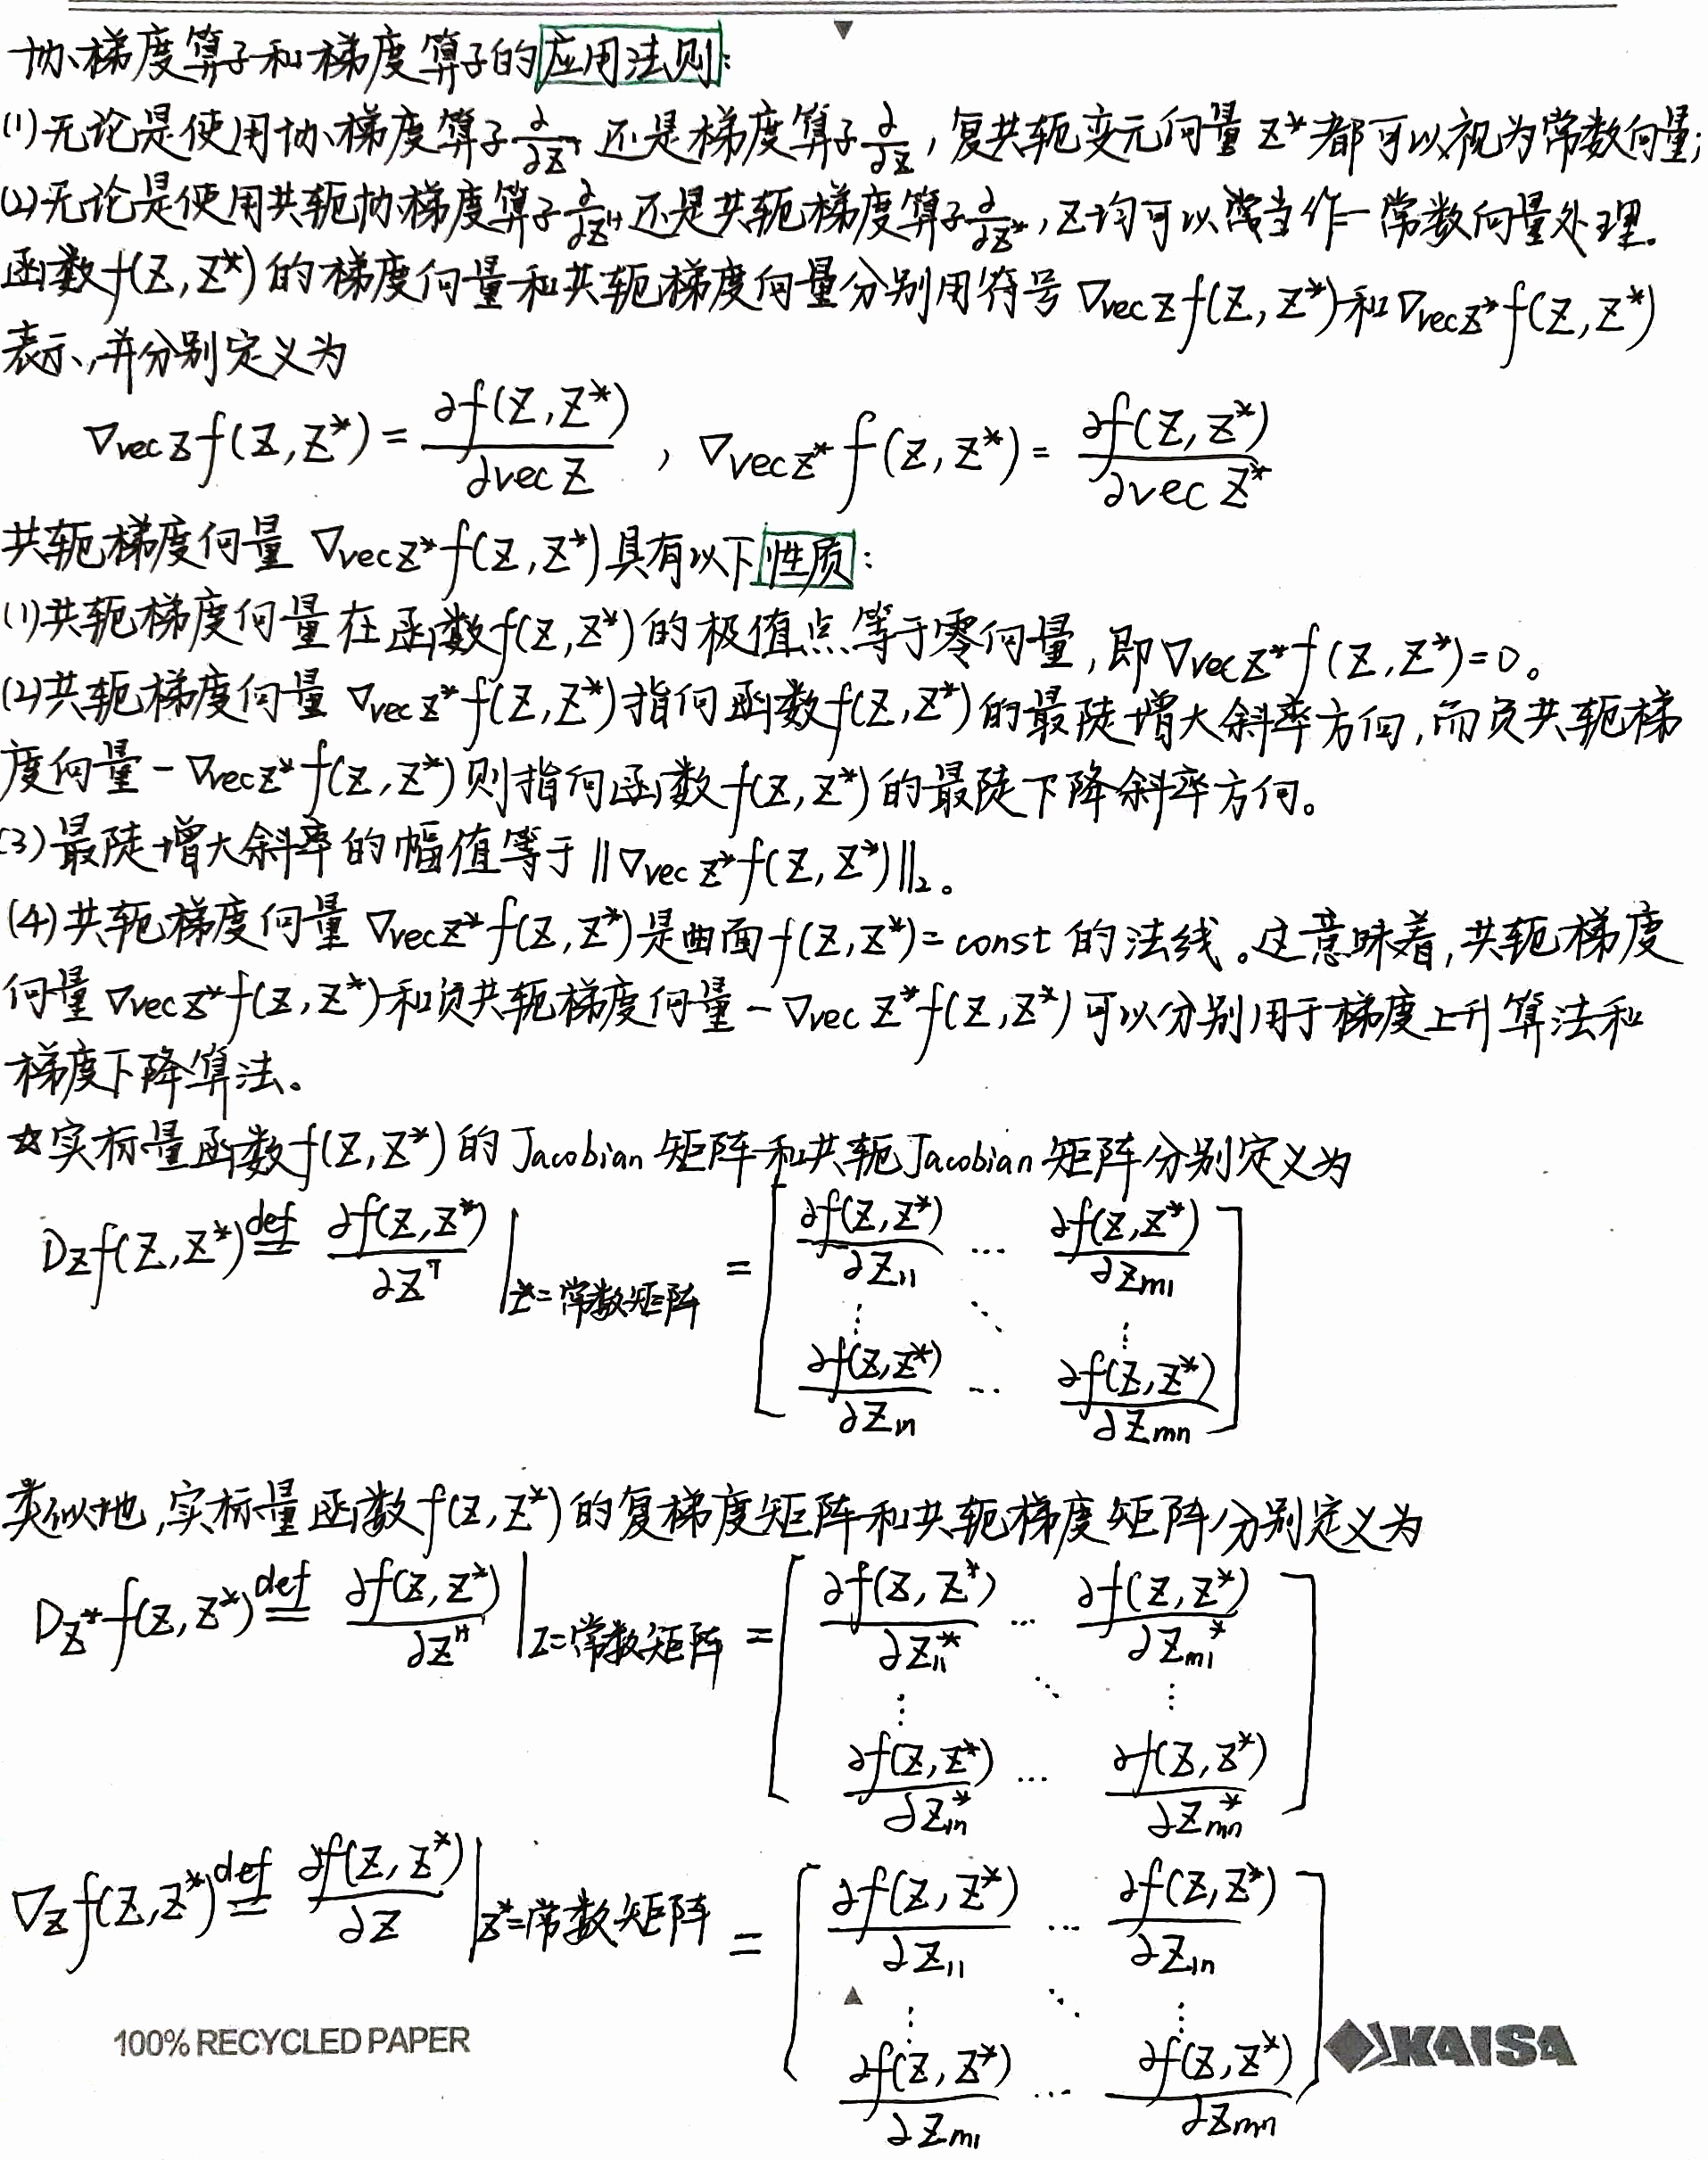 协梯度算子和梯度算子的应用法则:
(1)无论是使用协梯度算子∂/∂z^T 还是梯度算子∂/∂z, 复共轭变元向量 z* 都可以视为常数向量;
(2)无论是使用共轭协梯度算子∂/∂z^H 还是共轭梯度算子∂/∂z*, z均可以当作一常数向量处理。
函数f(Z, Z*)的梯度向量和共轭梯度向量分别用符号 ∇vec Z f(Z, Z*)和∇vec Z* f(Z, Z*)
表示,并分别定义为
∇vec Z f(Z, Z*) = ∂f(Z, Z*)/∂vec Z , ∇vec Z* f(Z, Z*) = ∂f(Z, Z*)/∂vec Z*
共轭梯度向量 ∇vec Z* f(Z, Z*)具有以下性质:
(1)共轭梯度向量在函数f(Z, Z*)的极值点等于零向量,即∇vec Z* f(Z, Z*)=0。
(2)共轭梯度向量 ∇vec Z* f(Z, Z*)指向函数f(Z, Z*)的最陡增大斜率方向,而负共轭梯
度向量 -∇vec Z* f(Z, Z*)则指向函数 f(Z, Z*)的最陡下降斜率方向。
(3)最陡增大斜率的幅值等于 ||∇vec Z* f(Z, Z*)||₂。
(4)共轭梯度向量 ∇vec Z* f(Z, Z*)是曲面f(Z, Z*)=const 的法线。这意味着,共轭梯度
向量 ∇vec Z* f(Z, Z*)和负共轭梯度向量 -∇vec Z* f(Z, Z*)可以分别用于梯度上升算法和
梯度下降算法。
☆实标量函数f(Z, Z*)的 Jacobian 矩阵和共轭Jacobian 矩阵分别定义为
D_Z f(Z, Z*) def= ∂f(Z, Z*)/∂Z^T |Z*=常数矩阵 = [∂f(Z, Z*)/∂Z₁₁ … ∂f(Z, Z*)/∂Zm1
⋮ ⋱ ⋮
∂f(Z, Z*)/∂Z1n … ∂f(Z, Z*)/∂Zmn]
类似地,实标量函数f(Z, Z*)的复梯度矩阵和共轭梯度矩阵分别定义为
D_Z* f(Z, Z*) def= ∂f(Z, Z*)/∂Z^H |Z=常数矩阵 = [∂f(Z, Z*)/∂Z₁₁* … ∂f(Z, Z*)/∂Zm1*
⋮ ⋱ ⋮
∂f(Z, Z*)/∂Z1n* … ∂f(Z, Z*)/∂Zmn*]
∇_Z f(Z, Z*) def= ∂f(Z, Z*)/∂Z |Z*=常数矩阵 = [∂f(Z, Z*)/∂Z₁₁ … ∂f(Z, Z*)/∂Z1n
⋮ ⋱ ⋮
∂f(Z, Z*)/∂Zm1 … ∂f(Z, Z*)/∂Zmn]
100% RECYCLED PAPER
KAISA